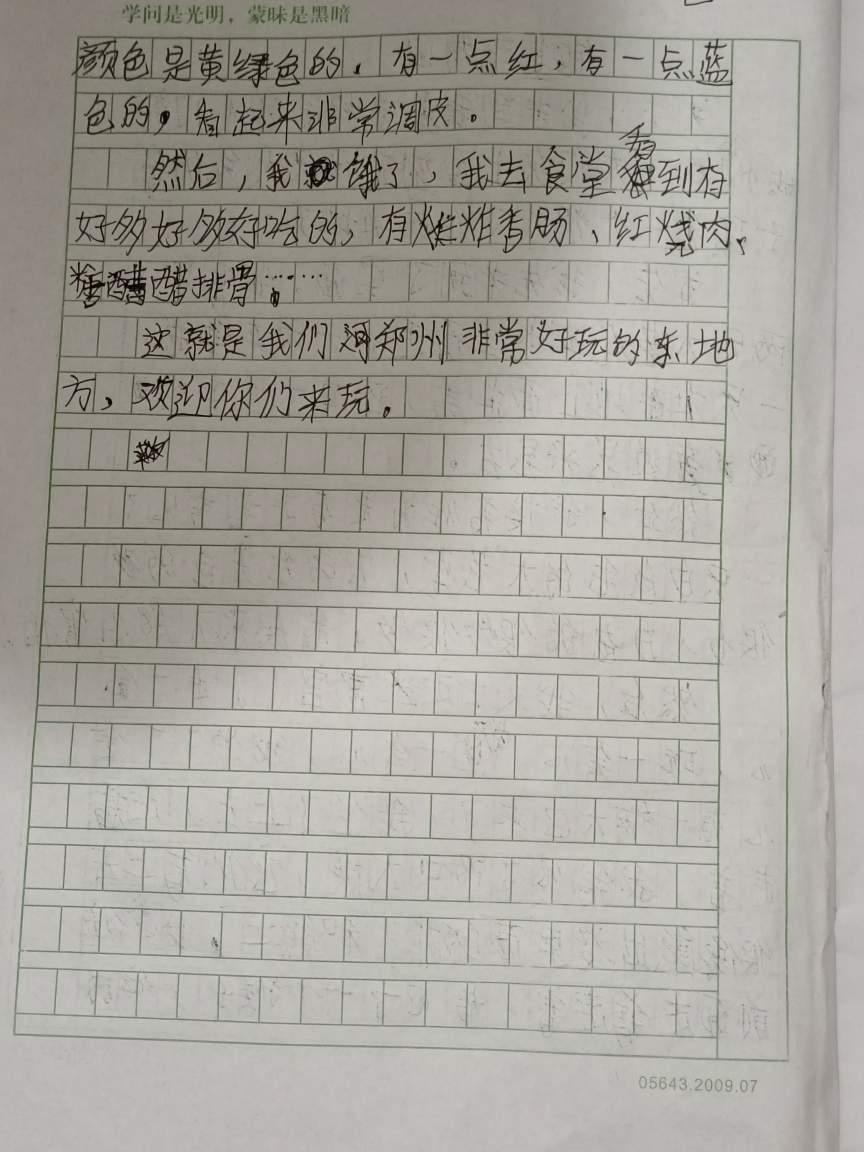 学问是光明，蒙昧是黑暗
颜色是黄绿色的，有一点红，有一点蓝
色的，看起来非常调皮。
然后，我饿了，我去食堂看到有
好多好多好吃的，有炸香肠、红烧肉、
糖醋排骨……
这就是我们郑州非常好玩的地
方，欢迎你们来玩。
05643.2009.07